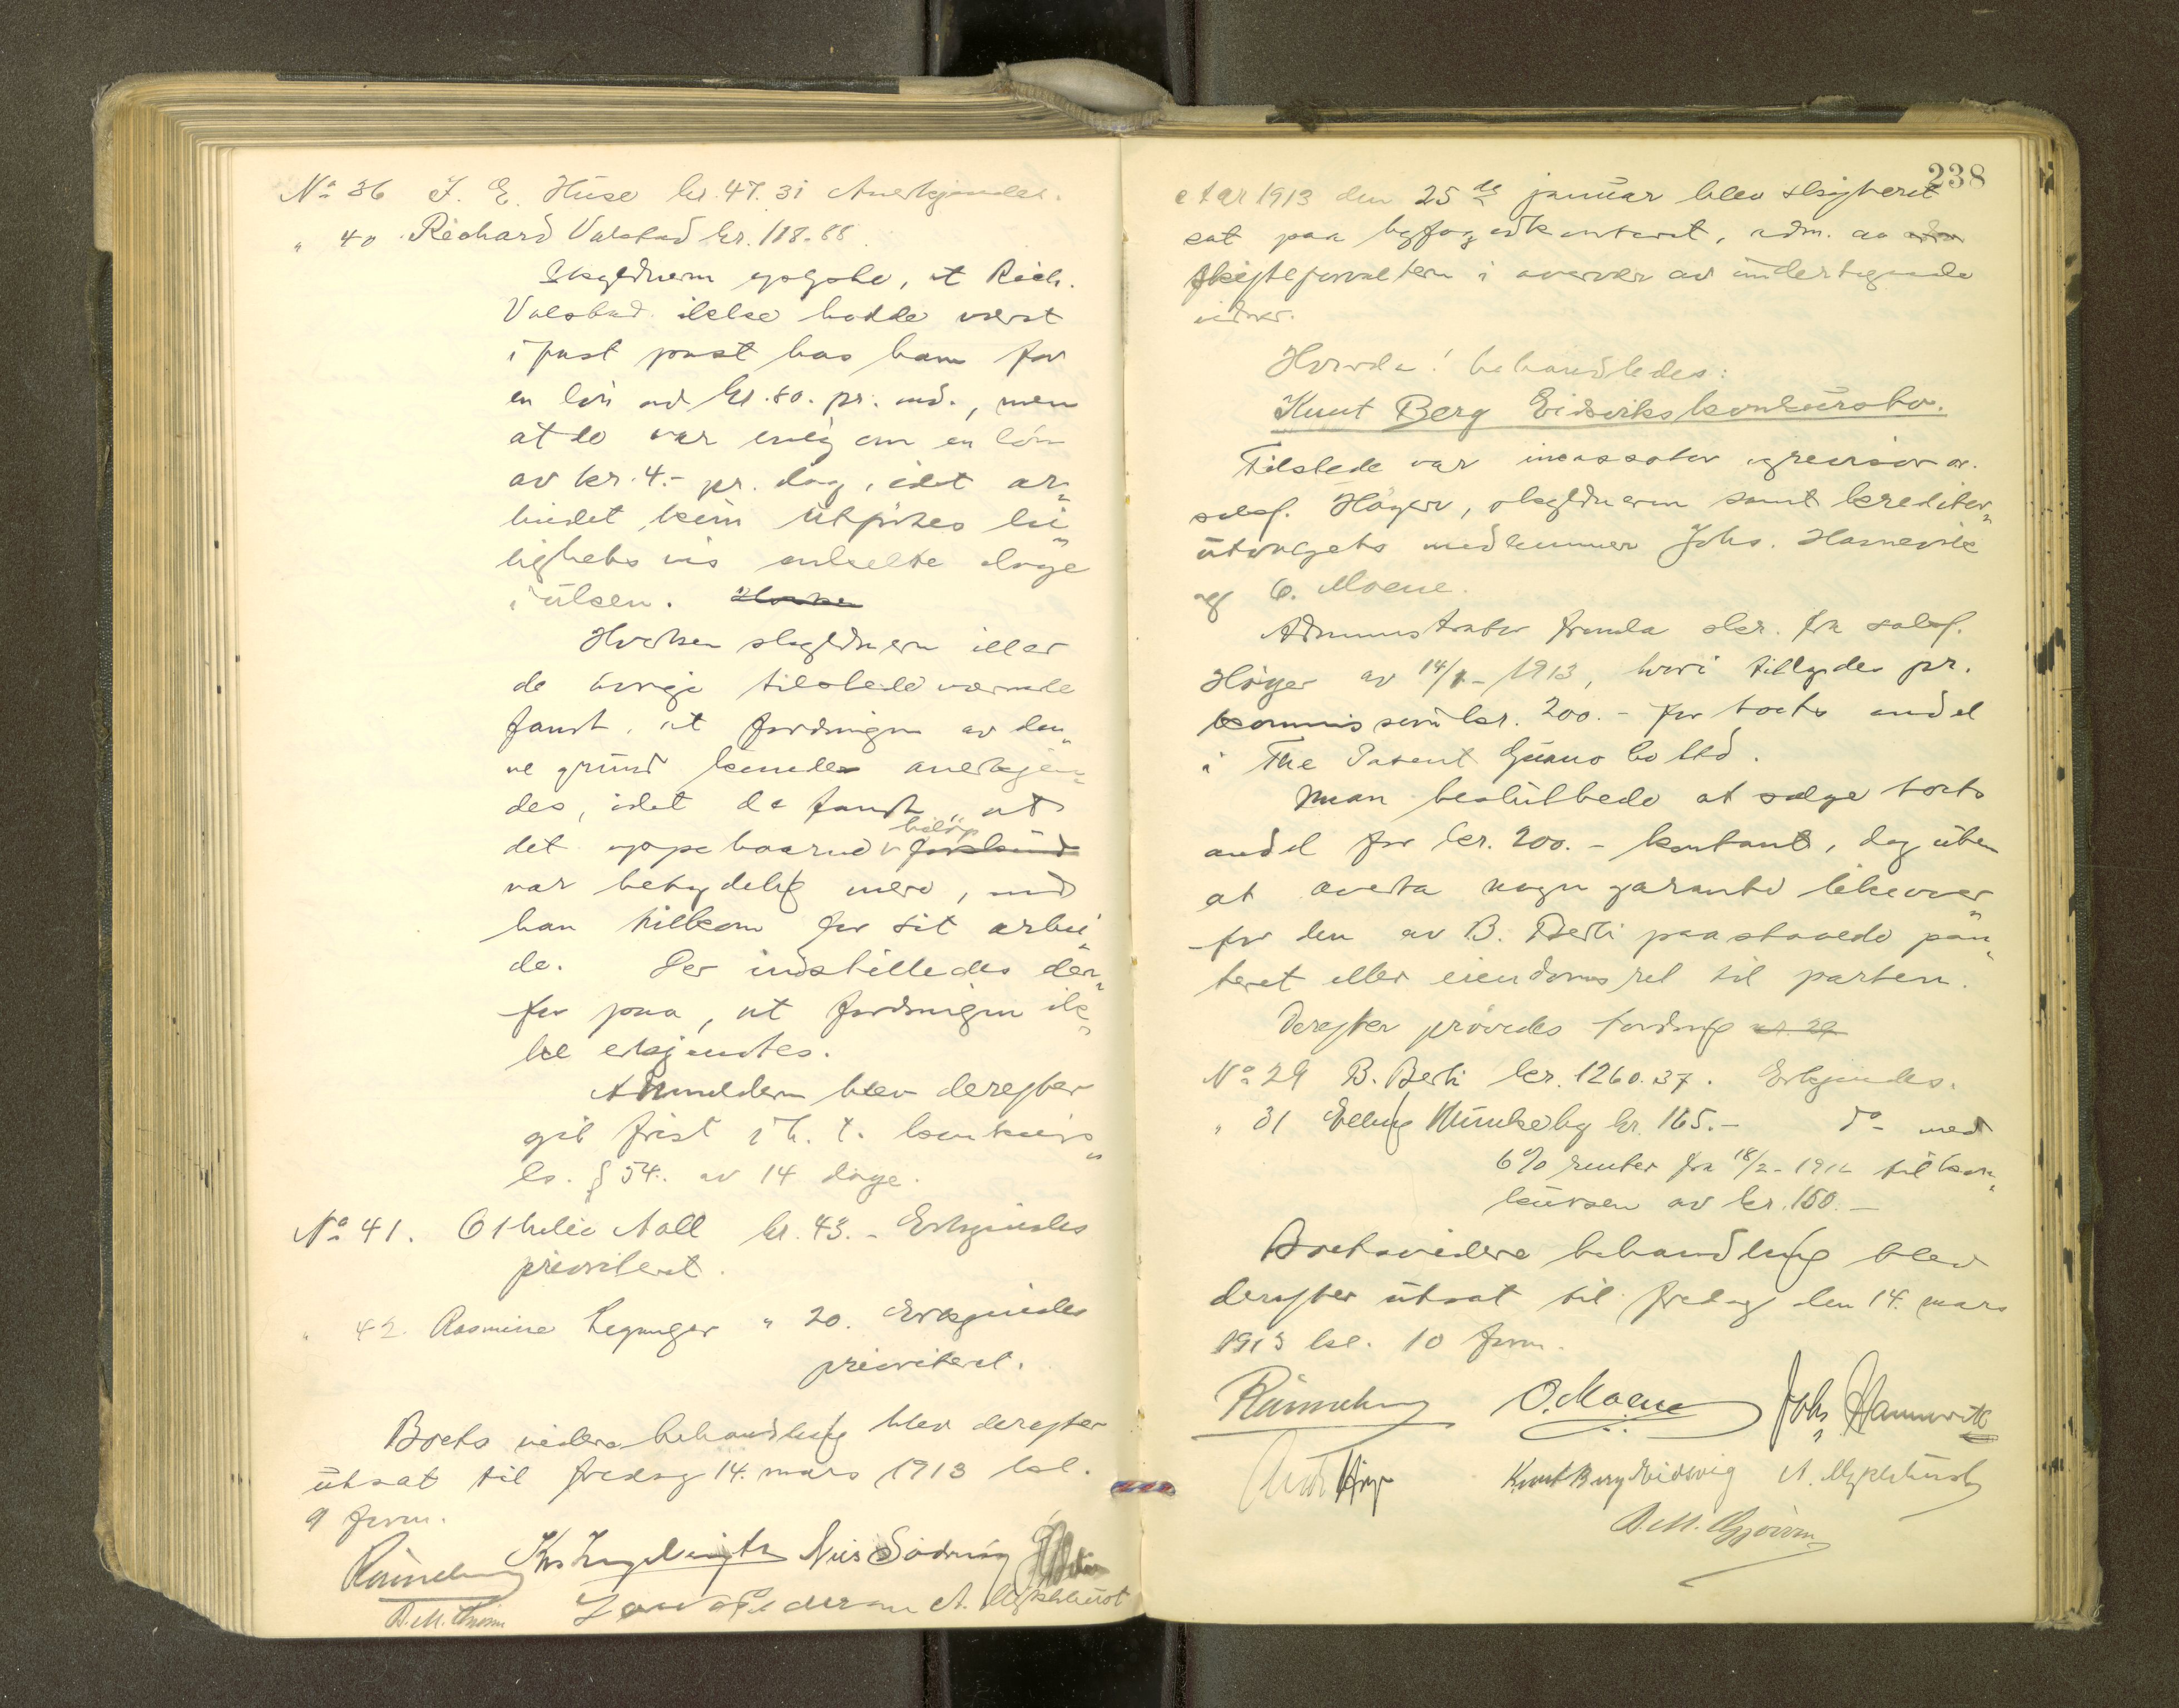 No 36 J. E. Huse kr. 47.31 Anerkjendes.
" 40 Richard Valstad kr. 118.88
Skyldneren opgebe, at Rich.
Valstad ikke hadde været
i fast post hos ham for
en løn av kr. 80. pr. md., men
at de var enig om en løn
av kr. 4.- pr. dag, idet ar„
beidet kun utføres lei„
lighetsvis enkelte dage
i uken.
Hverken skyldneren eller
de øvrige tilstedeværende
fandt, at fordringen av den„
ne grund kunde anerkjen„
des, idet de fandt, at
det oppebaarne beløp
var betydelig mere, end
han tilkom for sit arbei„
de. Der indstilledes der„
for paa, at fordringen ik„
ke erkjendtes.
Anmelderen blev derefter
git frist i h. t. konkurs„
ls. § 54. av 14 dage.
No 41. Othelie Aall kr. 43.- Erkjendes
prioritert.
" 42. Rasmine Leganger " 20. Erkjendes
prioritert.
Boets videre behandling blev derefter
utsat til fredag 14. mars 1913 kl.
9 form.
Nils Sødring
A. Myklebust
238
Aar 1913 den 25de januar blev skifteret
sat paa byfogedkontoret, adm. av
skifteforvalteren i overvær av undertegnede
vidner.
Hvorda! behandledes:
Knut Berg Eidsviks konkursbo.
Tilstede var incassator og revisor o.
sakf. Høyer, skyldneren samt kreditor„
utvalgets medlemmer Johs. Hamnevik
og O. Moene.
Administrator fremla skr. fra sakf.
Høyer av 14/1-1913, hvori tilbydes pr.
kommission kr. 200.- for boets andel
i The Patent Guano Co Ltd.
Man besluttede at sælge boets
andel for kr. 200.- kontant, dog uten
at overta nogen garanti likeover„
for den av B. Berli paastaaede pan„
teret eller eiendomsret til parten.
Derefter prøvedes fordring nr. 29
No 29 B. Berli kr. 1260.37. Erkjendes.
" 31 Elling Munkeby kr. 165.- do- med
6% renter fra 18/2-1912 til kon„
kursen av kr. 150.-
Boets videre behandling blev
derefter utsat til fredag den 14. mars
1913 kl. 10 form.
O. Moene Johs Hamnevik
Knut Berg Eidsvig A. Myklebust